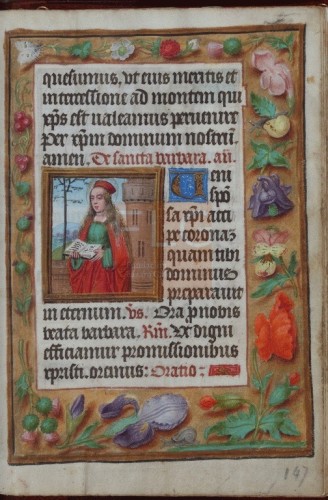 quesumus, vt eius meritis et
intercessione ad montem qui
xp̄s est valeamus peruenire
Per xp̄m dominum nostrū.
amen. De sancta barbara. añ.
Ueni
spō
sa xp̄i acci
pe coronaʒ
quam tibi
dominus
preparauit
in eternum. Vs. Ora pro nobis
beata barbara. Rm̄. Vt digni
efficiamur promissionibus
xpristi. oremus: Oratio:
147